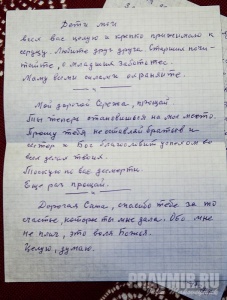 Дети мои
всех вас целую и крепко прижимаю к
сердцу. Любите друг друга. Старших почи-
тайте, о младших заботьтесь.
Маму всеми силами охраняйте.
Мой дорогой Сережа, прощай
Ты теперь становишься на мое место.
Прошу тебя не оставляй братьев и
сестер и Бог благословит успехом во
всех делах твоих.
Тоскую по вас до смерти.
Еще раз прощай.
Дорогая Саша, спасибо тебе за то
счастье, которое ты мне дала. Обо мне
не плачь, это воля Божья.
Целую,
PRAVMIR.RU